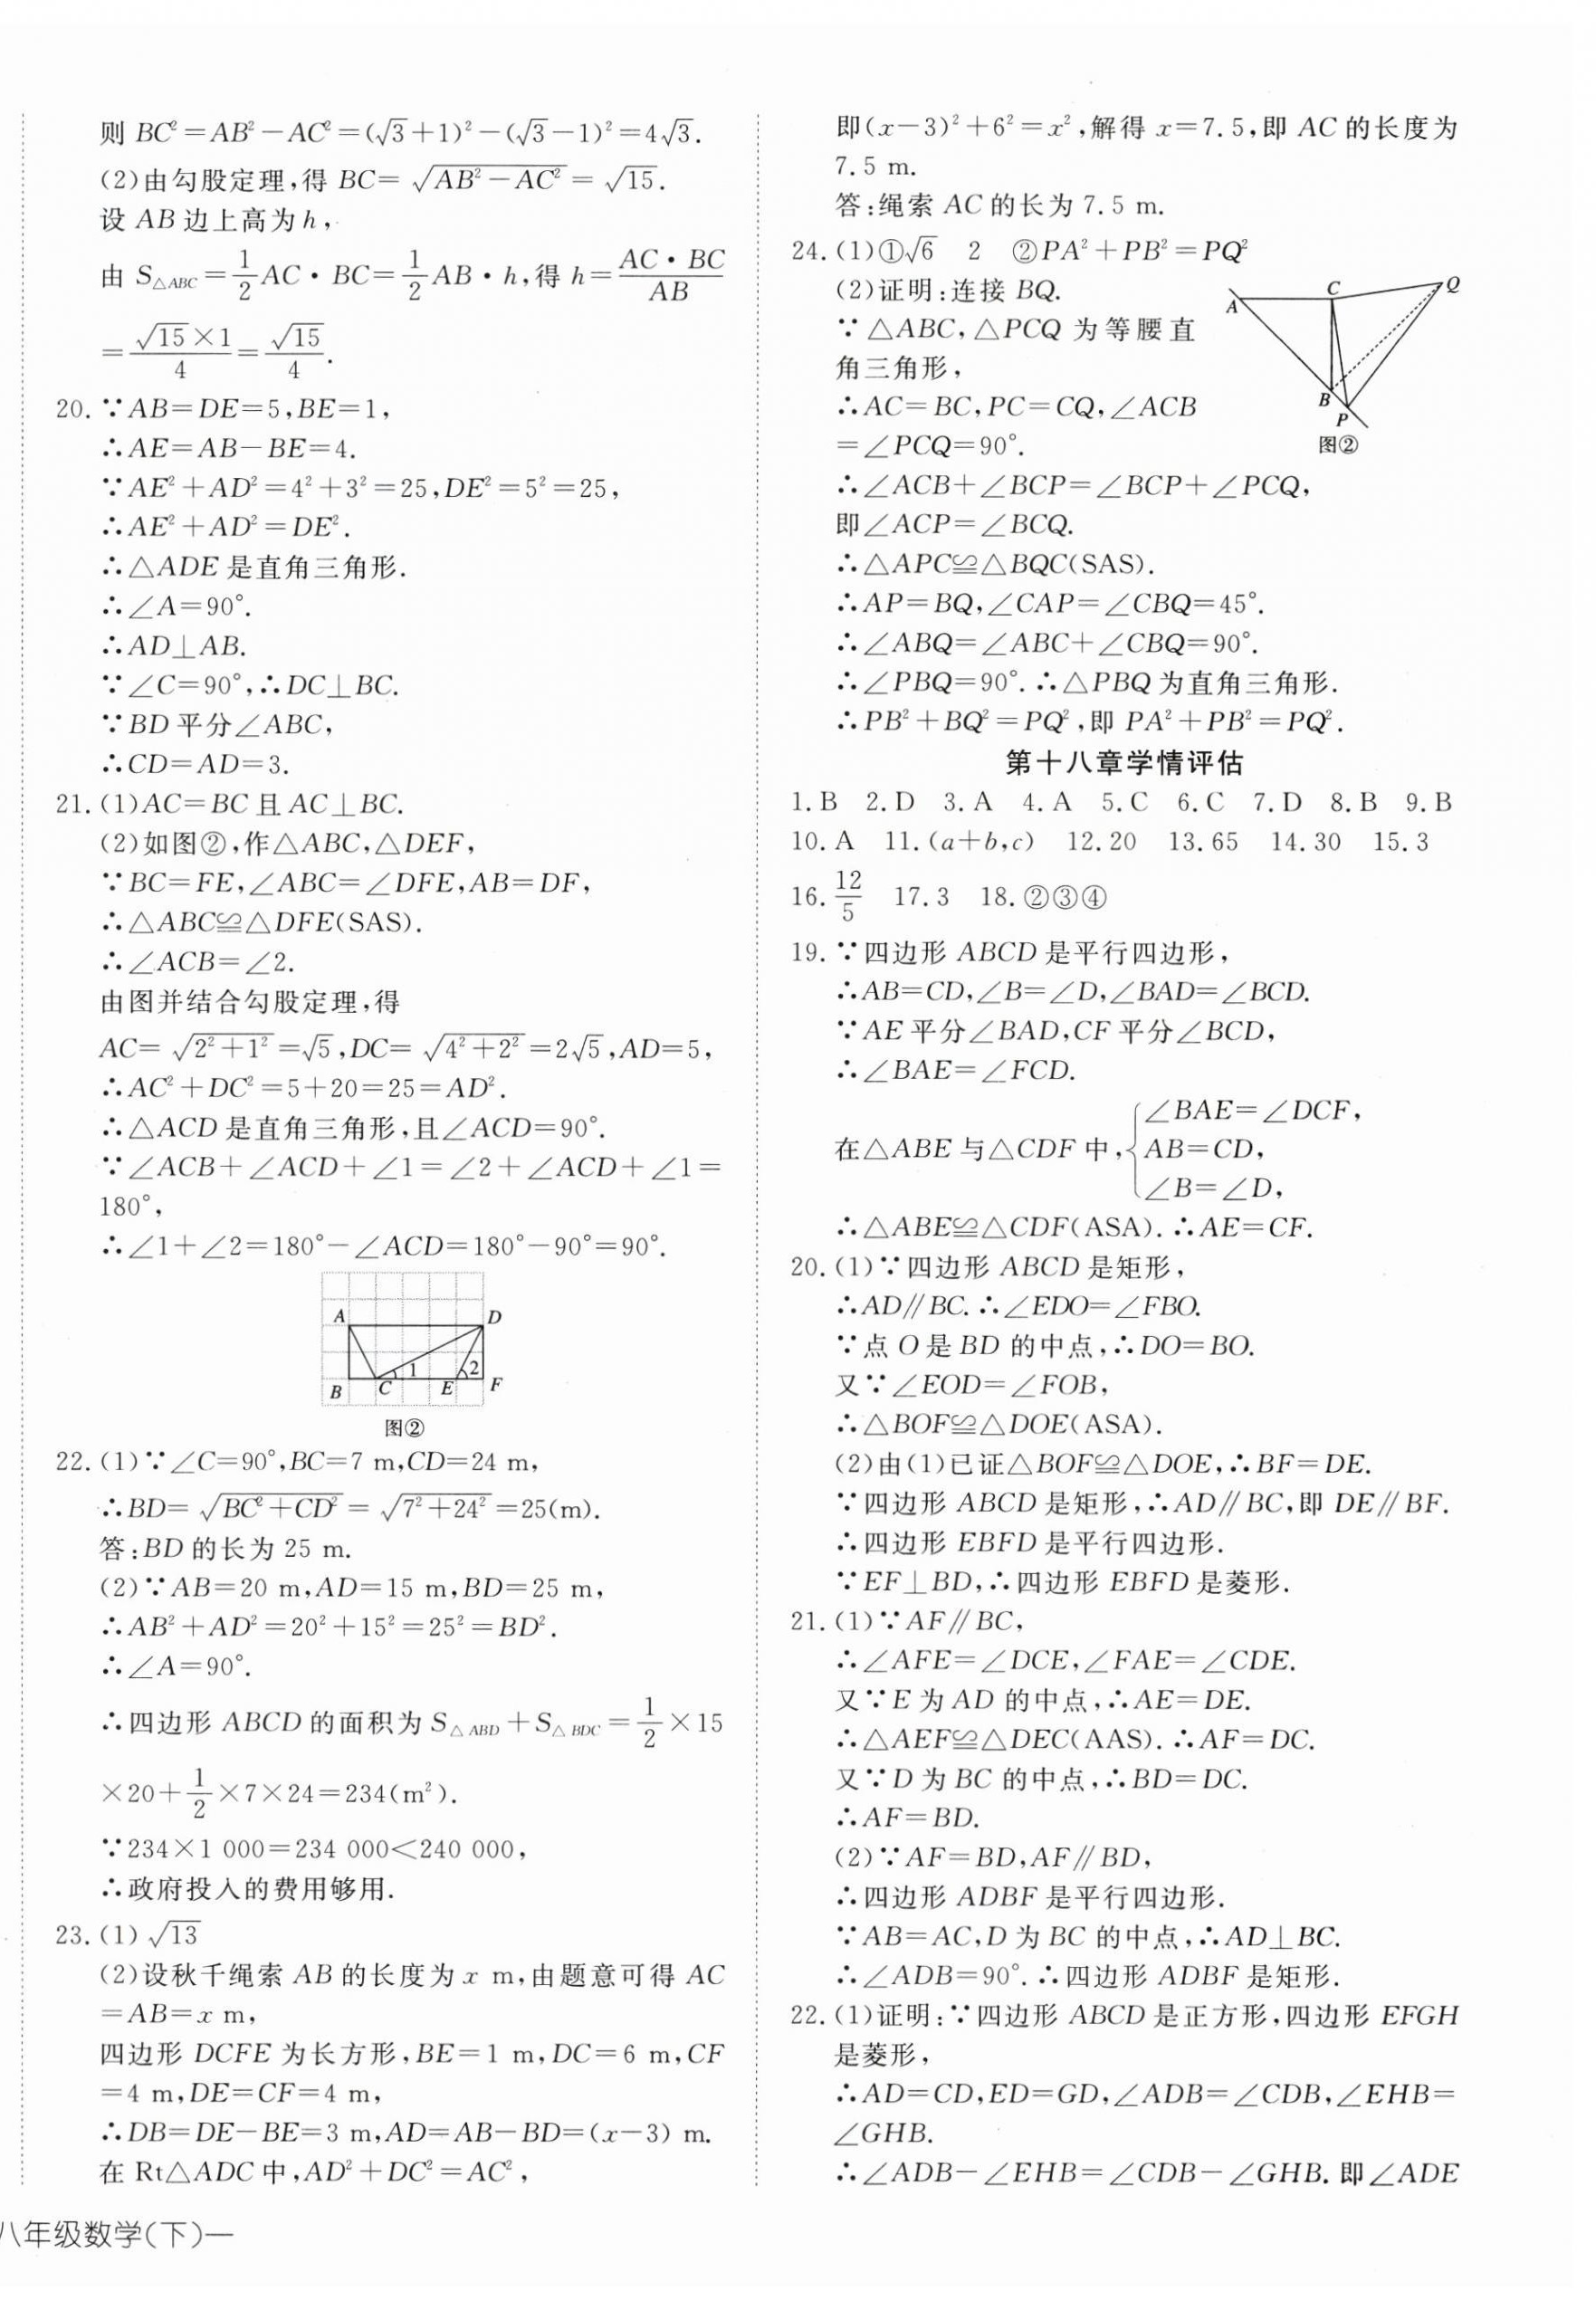 则 BC²=AB²-AC²=(√3+1)²-(√3-1)²=4√3.
(2)由勾股定理,得 BC=√(AB²-AC²)=√15.
设 AB 边上高为 h,
由 S△ABC=1/2 AC·BC=1/2 AB·h,得 h=AC·BC/AB
=√15×1/4=√15/4.
20.∵AB=DE=5,BE=1,
∴AE=AB-BE=4.
∵AE²+AD²=4²+3²=25,DE²=5²=25,
∴AE²+AD²=DE².
∴△ADE 是直角三角形.
∴∠A=90°.
∴AD⊥AB.
∵∠C=90°,∴DC⊥BC.
∵BD 平分∠ABC,
∴CD=AD=3.
21.(1)AC=BC 且 AC⊥BC.
(2)如图②,作△ABC,△DEF,
∵BC=FE,∠ABC=∠DFE,AB=DF,
∴△ABC≌△DFE(SAS).
∴∠ACB=∠2.
由图并结合勾股定理,得
AC=√(2²+1²)=√5,DC=√(4²+2²)=2√5,AD=5,
∴AC²+DC²=5+20=25=AD².
∴△ACD 是直角三角形,且∠ACD=90°.
∵∠ACB+∠ACD+∠1=∠2+∠ACD+∠1=
180°,
∴∠1+∠2=180°-∠ACD=180°-90°=90°.
A D
1 2
B C E F
图②
22.(1)∵∠C=90°,BC=7 m,CD=24 m,
∴BD=√(BC²+CD²)=√(7²+24²)=25(m).
答:BD 的长为 25 m.
(2)∵AB=20 m,AD=15 m,BD=25 m,
∴AB²+AD²=20²+15²=25²=BD².
∴∠A=90°.
∴四边形 ABCD 的面积为 S△ABD+S△BDC=1/2×15
×20+1/2×7×24=234(m²).
∵234×1 000=234 000<240 000,
∴政府投入的费用够用.
23.(1)√13
(2)设秋千绳索 AB 的长度为 x m,由题意可得 AC
=AB=x m,
四边形 DCFE 为长方形,BE=1 m,DC=6 m,CF
=4 m,DE=CF=4 m,
∴DB=DE-BE=3 m,AD=AB-BD=(x-3) m.
在 Rt△ADC 中,AD²+DC²=AC²,
八年级数学(下)—
即(x-3)²+6²=x²,解得 x=7.5,即 AC 的长度为
7.5 m.
答:绳索 AC 的长为 7.5 m.
24.(1)①√6 2 ②PA²+PB²=PQ²
(2)证明:连接 BQ.
∵△ABC,△PCQ 为等腰直
角三角形,
∴AC=BC,PC=CQ,∠ACB
=∠PCQ=90°.
A C Q
B
P
图②
∴∠ACB+∠BCP=∠BCP+∠PCQ,
即∠ACP=∠BCQ.
∴△APC≌△BQC(SAS).
∴AP=BQ,∠CAP=∠CBQ=45°.
∴∠ABQ=∠ABC+∠CBQ=90°.
∴∠PBQ=90°.∴△PBQ 为直角三角形.
∴PB²+BQ²=PQ²,即 PA²+PB²=PQ².
第十八章学情评估
1.B 2.D 3.A 4.A 5.C 6.C 7.D 8.B 9.B
10.A 11.(a+b,c) 12.20 13.65 14.30 15.3
16.12/5 17.3 18.②③④
19.∵四边形 ABCD 是平行四边形,
∴AB=CD,∠B=∠D,∠BAD=∠BCD.
∵AE 平分∠BAD,CF 平分∠BCD,
∴∠BAE=∠FCD.
∠BAE=∠DCF,
在△ABE 与△CDF 中,{AB=CD,
∠B=∠D,
∴△ABE≌△CDF(ASA).∴AE=CF.
20.(1)∵四边形 ABCD 是矩形,
∴AD∥BC.∴∠EDO=∠FBO.
∵点 O 是 BD 的中点,∴DO=BO.
又∵∠EOD=∠FOB,
∴△BOF≌△DOE(ASA).
(2)由(1)已证△BOF≌△DOE,∴BF=DE.
∵四边形 ABCD 是矩形,∴AD∥BC,即 DE∥BF.
∴四边形 EBFD 是平行四边形.
∵EF⊥BD,∴四边形 EBFD 是菱形.
21.(1)∵AF∥BC,
∴∠AFE=∠DCE,∠FAE=∠CDE.
又∵E 为 AD 的中点,∴AE=DE.
∴△AEF≌△DEC(AAS).∴AF=DC.
又∵D 为 BC 的中点,∴BD=DC.
∴AF=BD.
(2)∵AF=BD,AF∥BD,
∴四边形 ADBF 是平行四边形.
∵AB=AC,D 为 BC 的中点,∴AD⊥BC.
∴∠ADB=90°.∴四边形 ADBF 是矩形.
22.(1)证明:∵四边形 ABCD 是正方形,四边形 EFGH
是菱形,
∴AD=CD,ED=GD,∠ADB=∠CDB,∠EHB=
∠GHB.
∴∠ADB-∠EHB=∠CDB-∠GHB.即∠ADE